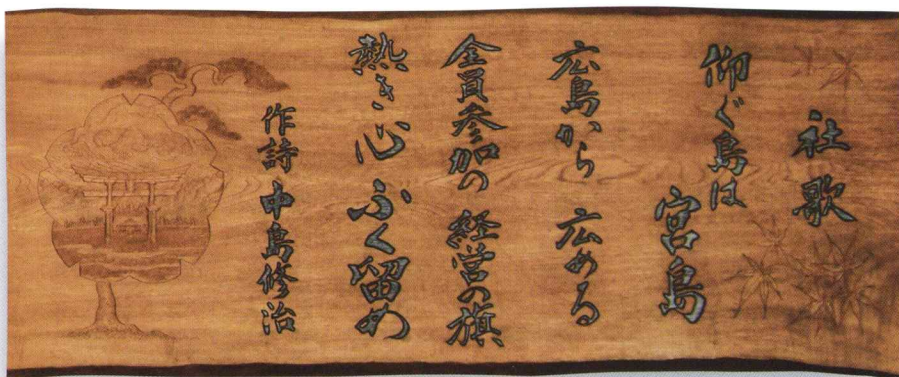 社歌
仰ぐ島は
宮島
広島から 広める
全員参加の 経営の旗
熱き心 ふく留め
作詩 中島修治